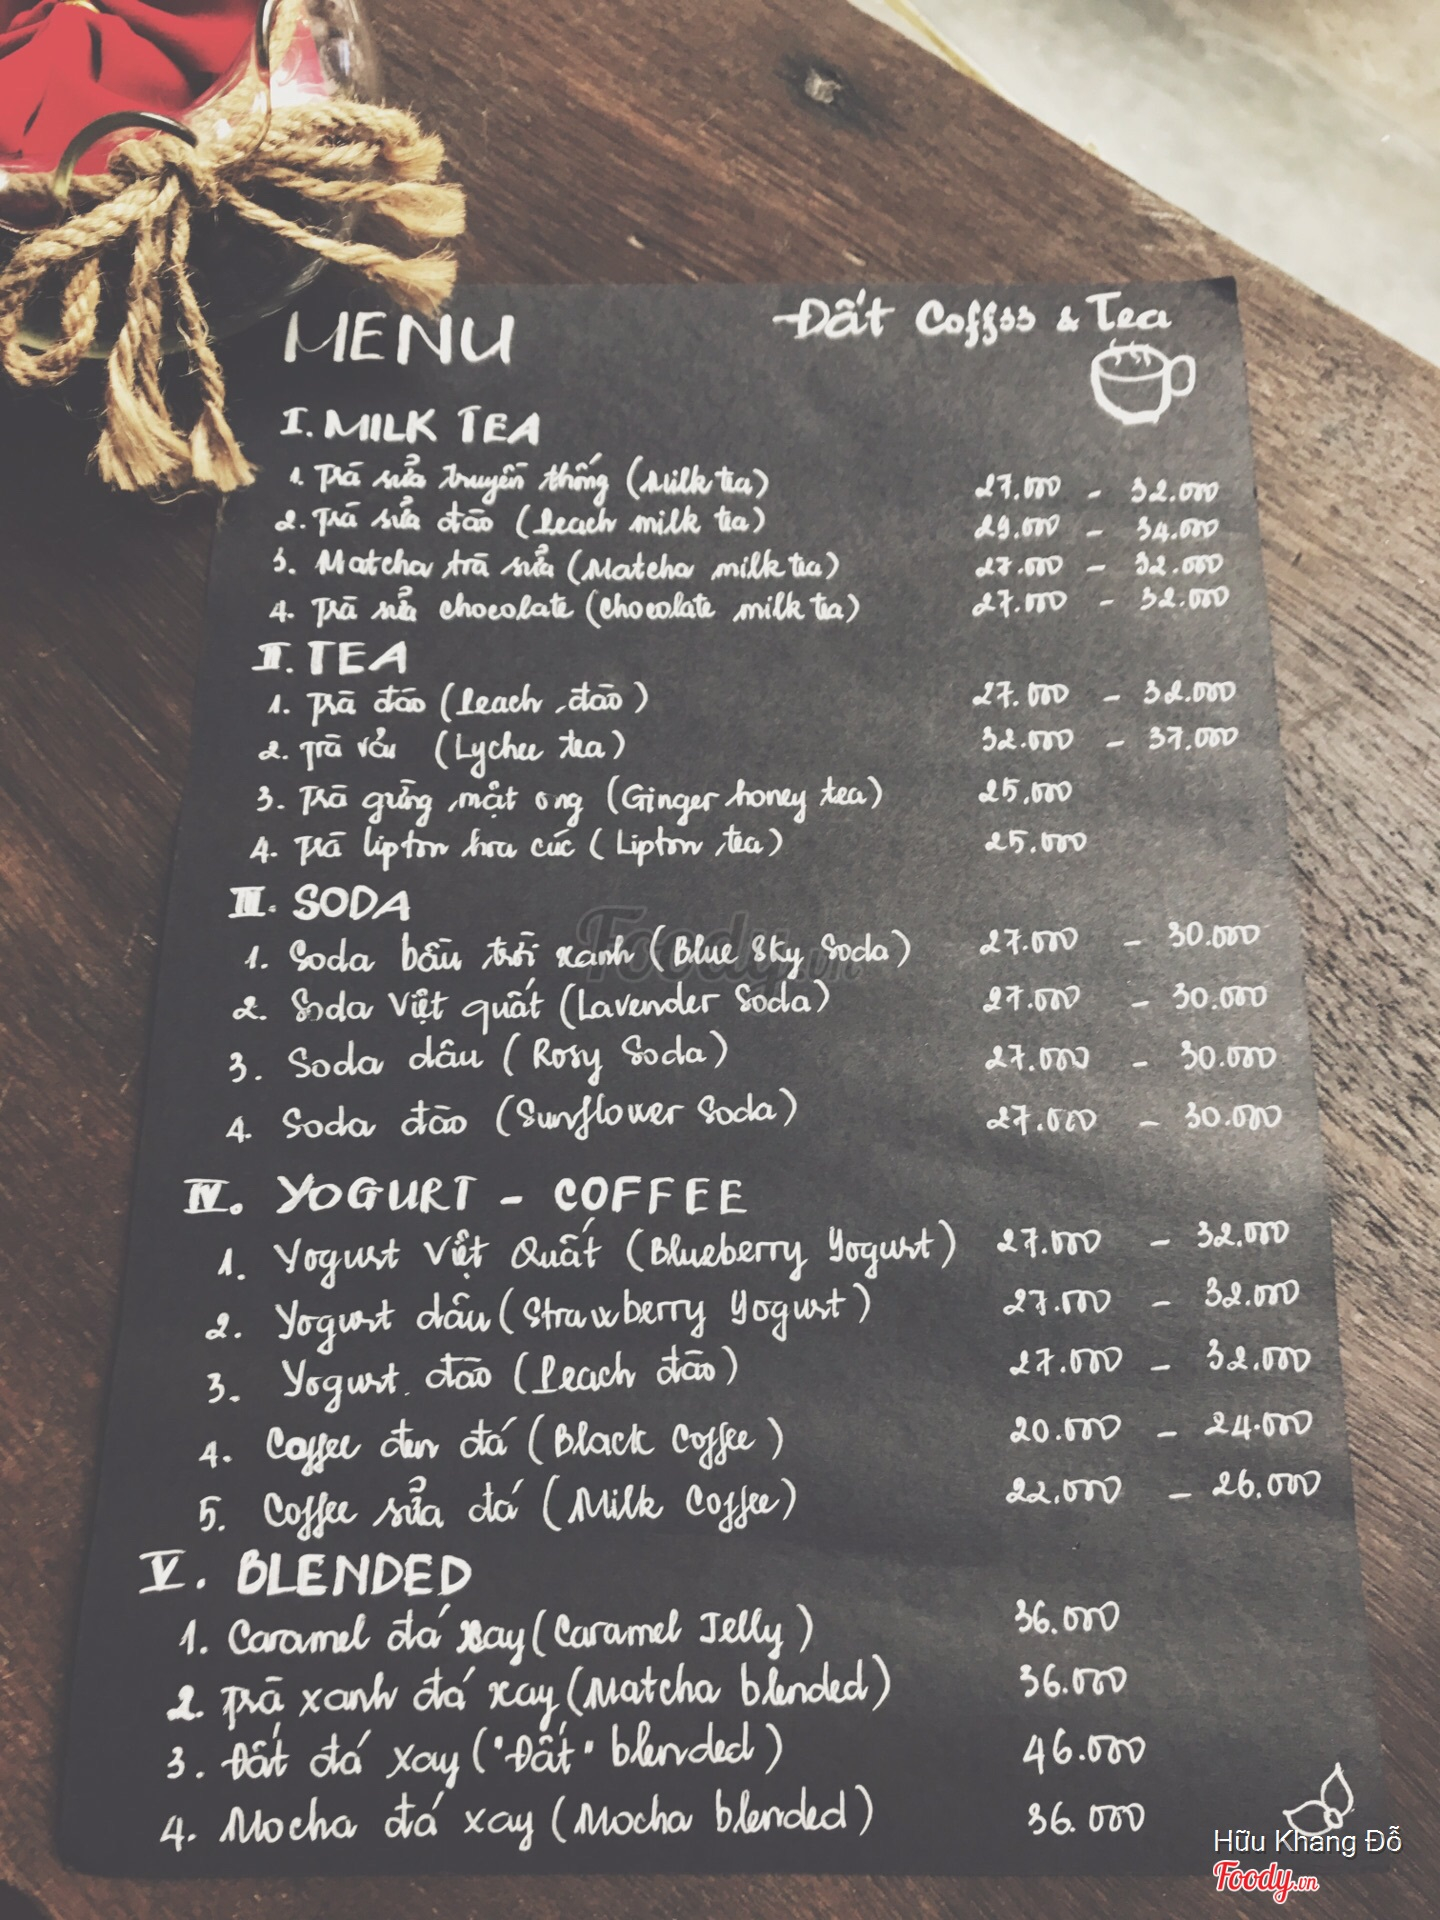 MENU
Đất Coffee & Tea
I. MILK TEA
1. Trà sữa truyền thống (Milk tea) 27.000 - 32.000
2. Trà sữa đào (Peach milk tea) 29.000 - 34.000
3. Matcha trà sữa (Matcha milk tea) 27.000 - 32.000
4. Trà sữa chocolate (Chocolate milk tea) 27.000 - 32.000
II. TEA
1. Trà đào (Peach đào) 27.000 - 32.000
2. Trà vải (Lychee tea) 32.000 - 37.000
3. Trà gừng mật ong (Ginger honey tea) 25.000
4. Trà lipton hoa cúc (Lipton tea) 25.000
III. SODA
1. Soda bầu trời xanh (Blue Sky Soda) 27.000 - 30.000
2. Soda Việt quất (Lavender Soda) 27.000 - 30.000
3. Soda dâu (Rosy Soda) 27.000 - 30.000
4. Soda đào (Sunflower Soda) 27.000 - 30.000
IV. YOGURT - COFFEE
1. Yogurt Việt Quất (Blueberry Yogurt) 27.000 - 32.000
2. Yogurt dâu (Strawberry Yogurt) 27.000 - 32.000
3. Yogurt đào (Peach đào) 27.000 - 32.000
4. Coffee đen đá (Black Coffee) 20.000 - 24.000
5. Coffee sữa đá (Milk Coffee) 22.000 - 26.000
V. BLENDED
1. Caramel đá xay (Caramel Jelly) 36.000
2. Trà xanh đá xay (Matcha blended) 36.000
3. Đất đá xay ("Đất" blended) 46.000
4. Mocha đá xay (Mocha blended) 36.000
Foody.vn
Hữu Khang Đỗ
Foody.vn